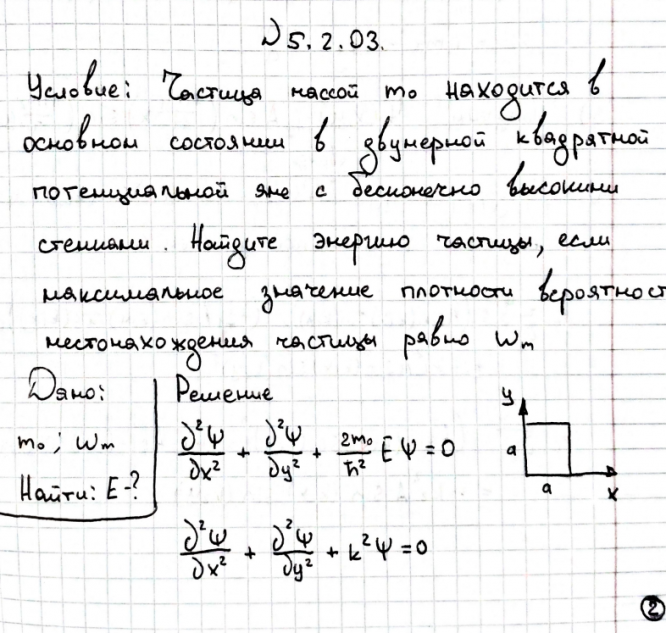 N 5.2.03.
Условие: Частица массой m₀ находится в
основном состоянии в двумерной квадратной
потенциальной яме с бесконечно высокими
стенками. Найдите энергию частицы, если
максимальное значение плотности вероятност
местонахождения частицы равно wₘ
Дано:
m₀; wₘ
Найти: E-?
Решение
∂²Ψ/∂x² + ∂²Ψ/∂y² + 2m₀/ħ² EΨ = 0
∂²Ψ/∂x² + ∂²Ψ/∂y² + k²Ψ = 0
y
a
a
x
2